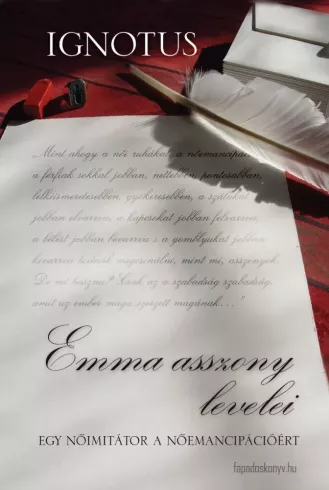 IGNOTUS
„Mint ahogy a női ruhákat, a nőemancipáci
a férfiak sokkal jobban, nettebben, pontosabban,
lelkiismeretesebben, gyökeresebben, a szálakat
jobban elvarrva, a kapcsokat jobban felvarrva,
a bélést jobban bevarrva s a gomblyukat jobban
kivarrva tudnák megcsinálni, mint mi, asszonyok.
De mi haszna? Csak az a szabadság szabadság,
amit az ember maga szerzett magának…”
Emma asszony
levelei
EGY NŐIMITÁTOR A NŐEMANCIPÁCIÓÉRT
fapadoskonyv.hu